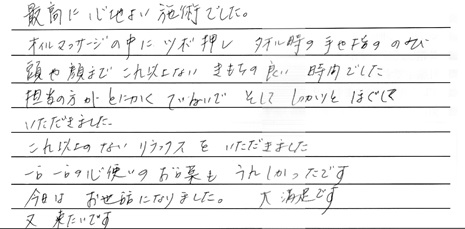 最高に心地よい施術でした。
オイルマッサージの中にツボ押し タオル時の手や指ののび
頭や顔まで これ以上ない きもちの良い 時間でした
担当の方がとにかく ていねいで そして しっかりと ほぐして
いただきました
これ以上のない リラックスを いただきました
一言一言の心使いのお言葉も うれしかったです
今日は お世話になりました。 大満足です
又 来たいです